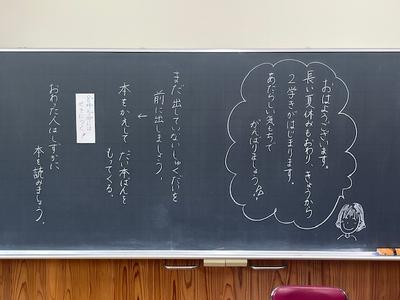 おはようございます。
長い夏休みもおわり、きょうから
2学きがはじまります。
あたらしい気もちで
がんばりましょうね。
まだ出していないしゅくだいを
前に出しましょう。
↓
本をかえして だい本ばんを
もってくる。
おわった人はしずかに
本を読みましょう。